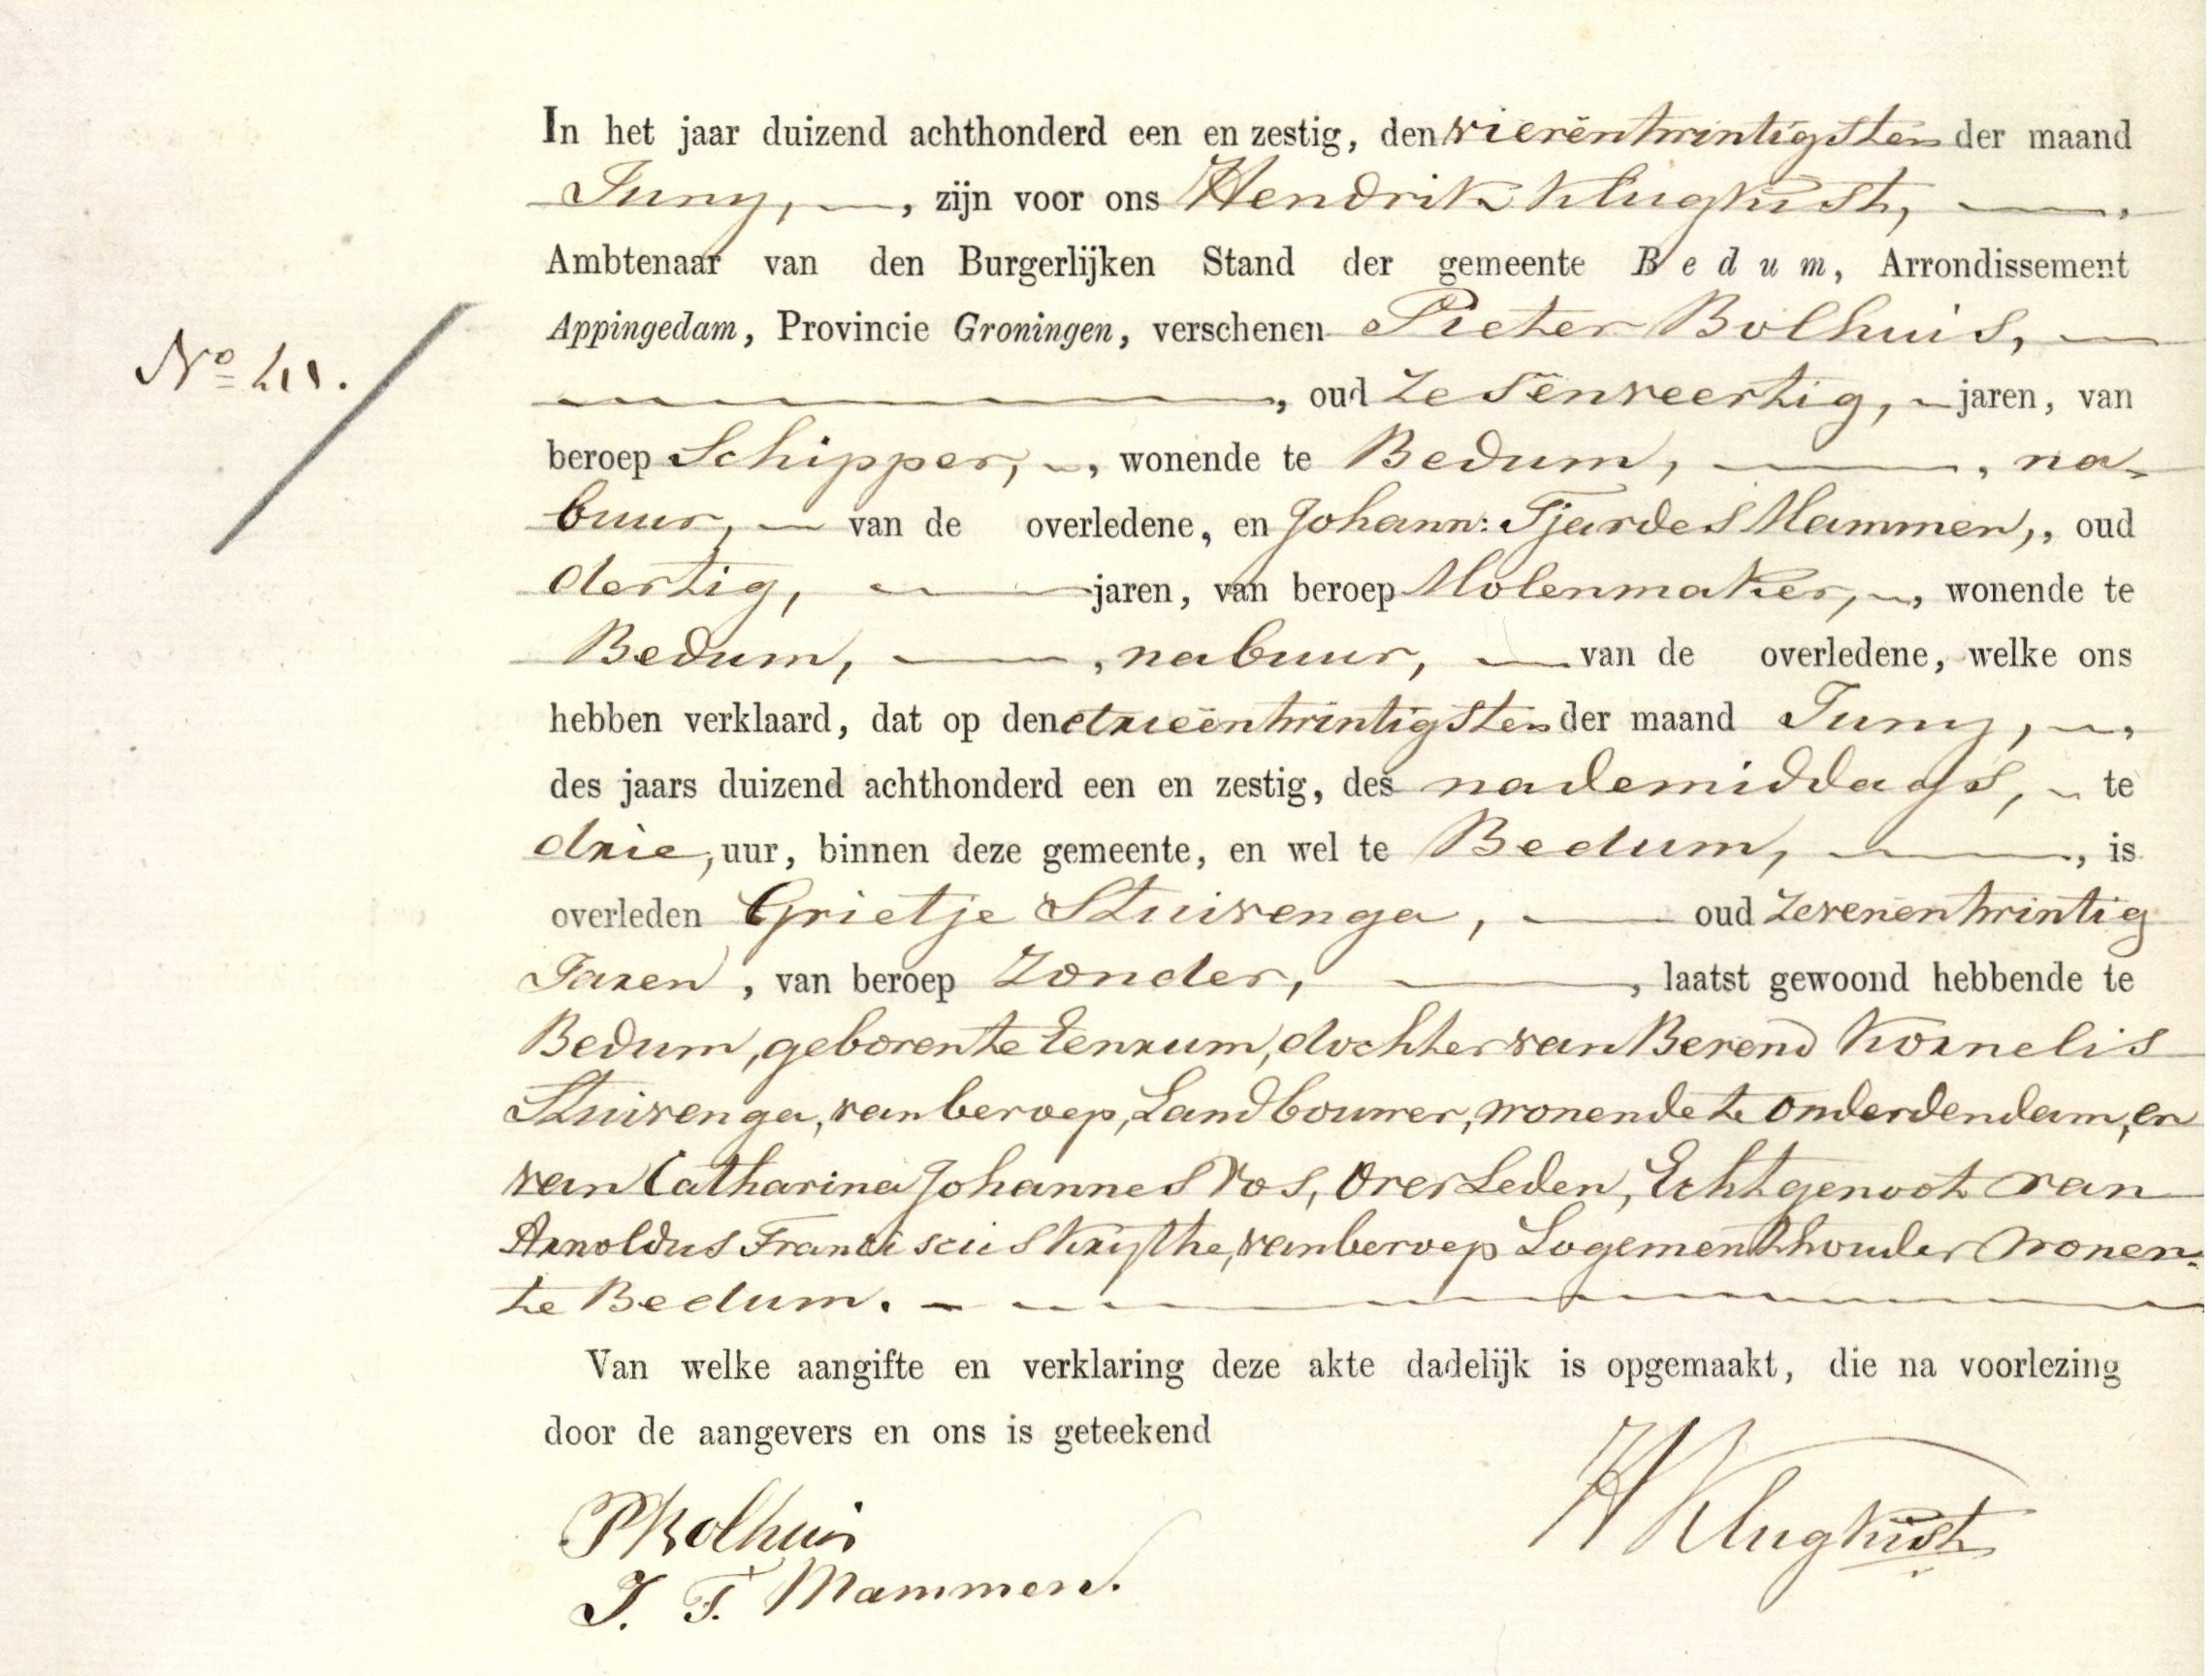 In het jaar duizend achthonderd een en zestig, den vierëntwintigsten der maand
Juny, —, zijn voor ons Hendrik Klugkist, —,
Ambtenaar van den Burgerlijken Stand der gemeente Bedum, Arrondissement
Appingedam, Provincie Groningen, verschenen Pieter Bolhuis, —
No 41. —, oud Zesënveertig, - jaren, van
beroep Schipper, -, wonende te Bedum, —, na-
buur, — van de overledene, en Johann: Tjardes Mammen,, oud
dertig, — jaren, van beroep Molenmaker, -, wonende te
Bedum, —, nabuur, — van de overledene, welke ons
hebben verklaard, dat op den drieëntwintigsten der maand Juny, -,
des jaars duizend achthonderd een en zestig, des nademiddags, - te
drie, uur, binnen deze gemeente, en wel te Bedum, —, is
overleden Grietje Stuivenga, — oud zevenëntwintig
Jaren, van beroep Zonder, —, laatst gewoond hebbende te
Bedum, geboren te Eenrum, dochter van Berend Kornelis
Stuivenga, van beroep, Landbouwer, wonende te Onderdendam, en
van Catharina Johannes Vos, Overleden, Echtgenoot van
Arnoldus Franciscus Krijthe, van beroep Logementhouder wonen.
te Bedum. — —
Van welke aangifte en verklaring deze akte dadelijk is opgemaakt, die na voorlezing
door de aangevers en ons is geteekend
PBolhuis
HKlugkist
J. T. Mammen.